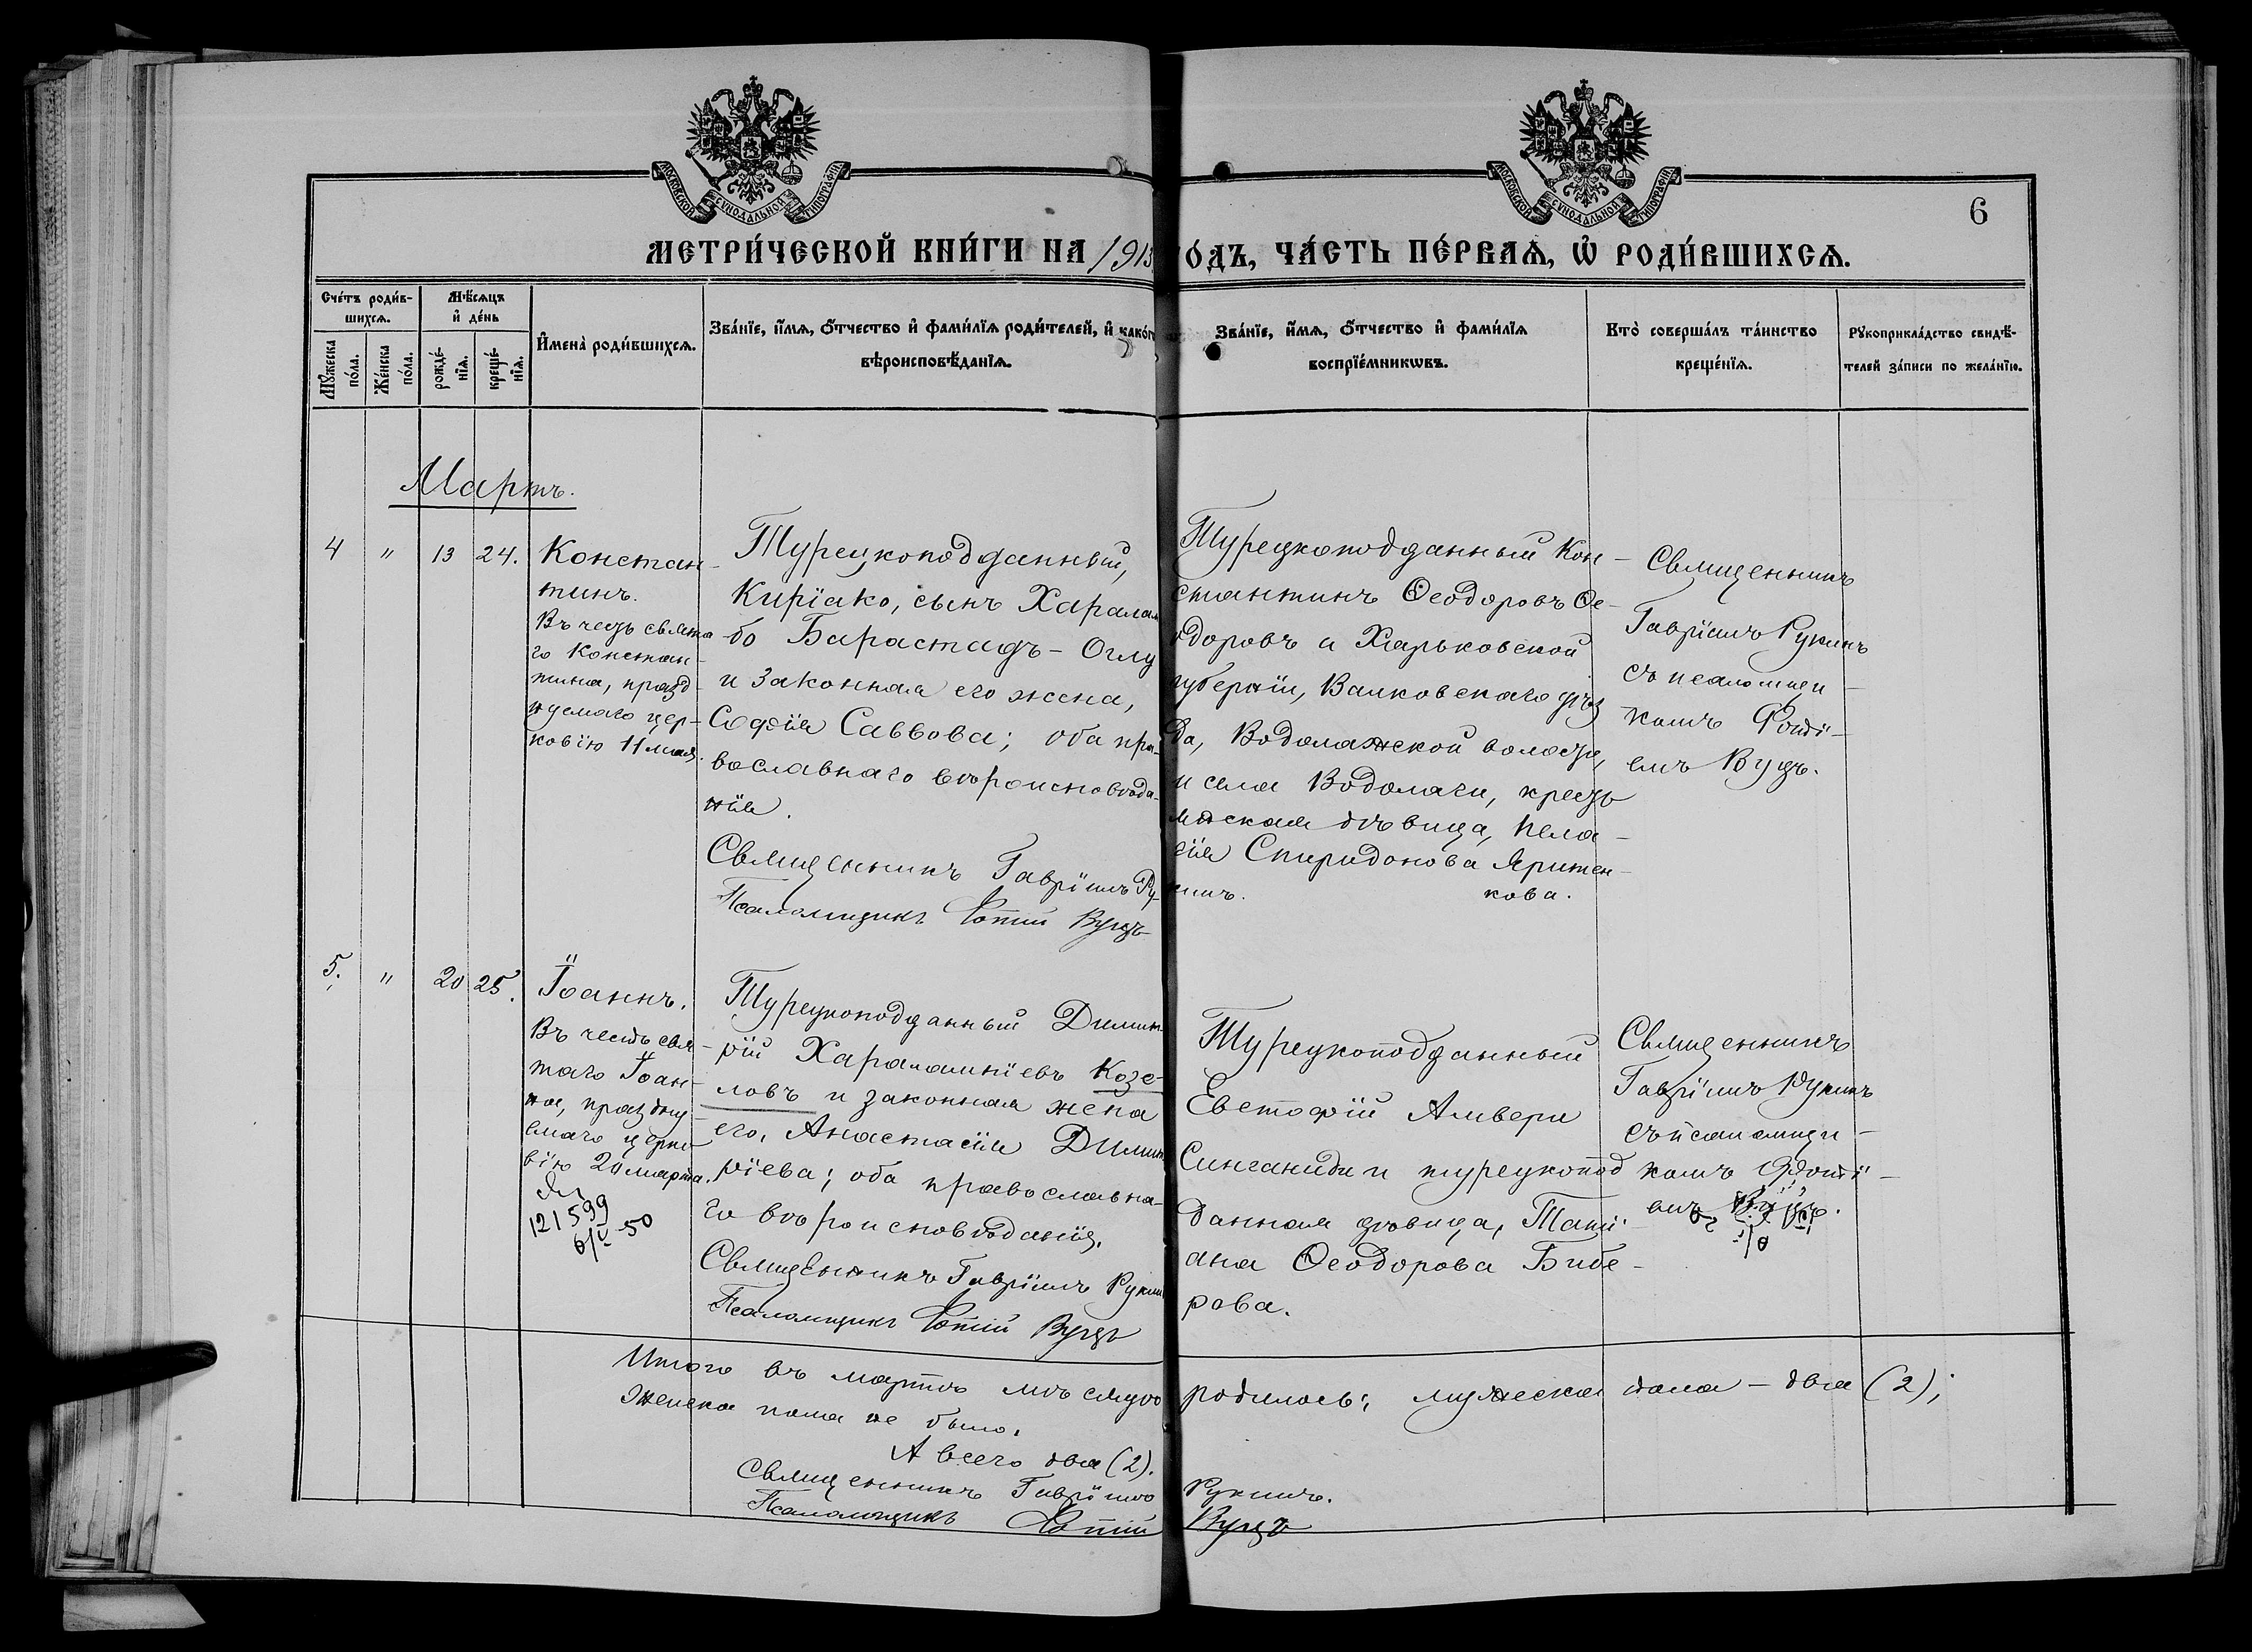 МОСКОВСКОЙ СѴНОДАЛЬНОЙ ТИПОГРАФІИ
МОСКОВСКОЙ СѴНОДАЛЬНОЙ ТИПОГРАФІИ
6
МЕТРИ́ЧЕСКОЙ КНИ́ГИ НА 1913 ГО́ДЪ, ЧА́СТЬ ПЕ́РВАѦ, Ѡ РОДИ́ВШИХСѦ.
Сче́тъ роди́в-
шихсѧ.
Мѣ́сѧцъ
и де́нь
Мꙋ́жеска по́ла.
Же́нска по́ла.
рожде́-
нїѧ.
креще́-
нїѧ.
Имена̀ роди́вшихсѧ.
Зва́нїе, и́мѧ, ѻ́тчество и фами́лїѧ роди́телей, и како́гѡ
вѣроисповѣ́данїѧ.
Зва́нїе, и́мѧ, ѻ́тчество и фами́лїѧ
воспрїе́мникѡвъ.
Кто̀ соверша́лъ та́инство
креще́нїѧ.
Рꙋкоприкла́дство свидѣ́-
телей за́писи по жела́нїю.
Мартъ.
4 " 13 24.
Констан-
тинъ.
Въ честь свята
го Констан-
тина, празд-
нуемаго цер-
ковію 11 мая.
Турецкоподданный,
Киріако, сынъ Харалам
бо Барастадъ-Оглу
и законная его жена,
Софія Саввова; оба пра-
вославнаго вѣроисповѣда-
нія.
Священникъ Гавріилъ Ру-
кинъ.
Псаломщикъ Фотій Вуцъ
Турецкоподданный Кон-
стантинъ Ѳеодоровъ Ѳе-
одоровъ и Харьковской
губерніи, Валковскаго уѣз
да, Водолажской волости,
и села Водолаги, кресть
янская дѣвица, Пела-
гія Спиридонова Яритен-
кова.
Священникъ
Гавріилъ Рукинъ
съ псаломщи-
комъ Фоті-
емъ Вуцъ.
5. " 20 25.
Іоаннъ.
Въ честь свя-
таго Іоан-
на, праздну
емаго церко
вію 20 марта.
121599
6/V-50
Турецкоподданный Димит
рій Харалампіевъ Козе-
ловъ и законная жена
его, Анастасія Димит
ріева; оба православна-
го вѣроисповѣданія.
Священникъ Гавріилъ Рукинъ
Псаломщикъ Фотій Вуцъ
Турецкоподданный
Евстафій Аивери
Синганиди и турецкопод
данная дѣвица, Таті-
ана Ѳеодорова Бибе-
рова.
Священникъ
Гавріилъ Рукинъ
съ псаломщи-
комъ Фоті-
емъ Вуцъ.
Итого въ мартѣ мѣсяцѣ родилось: мужеска пола - два (2);
женска пола не было.
А всего два (2).
Священникъ Гавріилъ Рукинъ.
Псаломщикъ Фотій Вуцъ